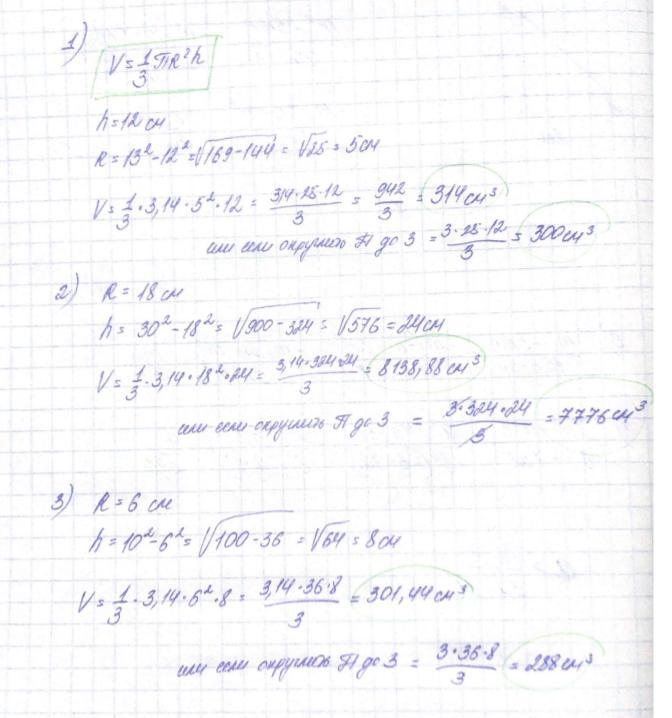 1)
V = 1/3 πR²h
h = 12 см
R = 13² - 12² = √169 - 144 = √25 = 5 см
V = 1/3 · 3,14 · 5² · 12 = 314 · 25 · 12 / 3 = 942/3 = 314 см³
или если округлить π до 3 = 3 · 25 · 12 / 3 = 300 см³
2) R = 18 см
h = 30² - 18² = √900 - 324 = √576 = 24 см
V = 1/3 · 3,14 · 18² · 24 = 3,14 · 324 · 24 / 3 = 8138,88 см³
или если округлить π до 3 = 3 · 324 · 24 / 3 = 7776 см³
3) R = 6 см
h = 10² - 6² = √100 - 36 = √64 = 8 см
V = 1/3 · 3,14 · 6² · 8 = 3,14 · 36 · 8 / 3 = 301,44 см³
или если округлить π до 3 = 3 · 36 · 8 / 3 = 288 см³